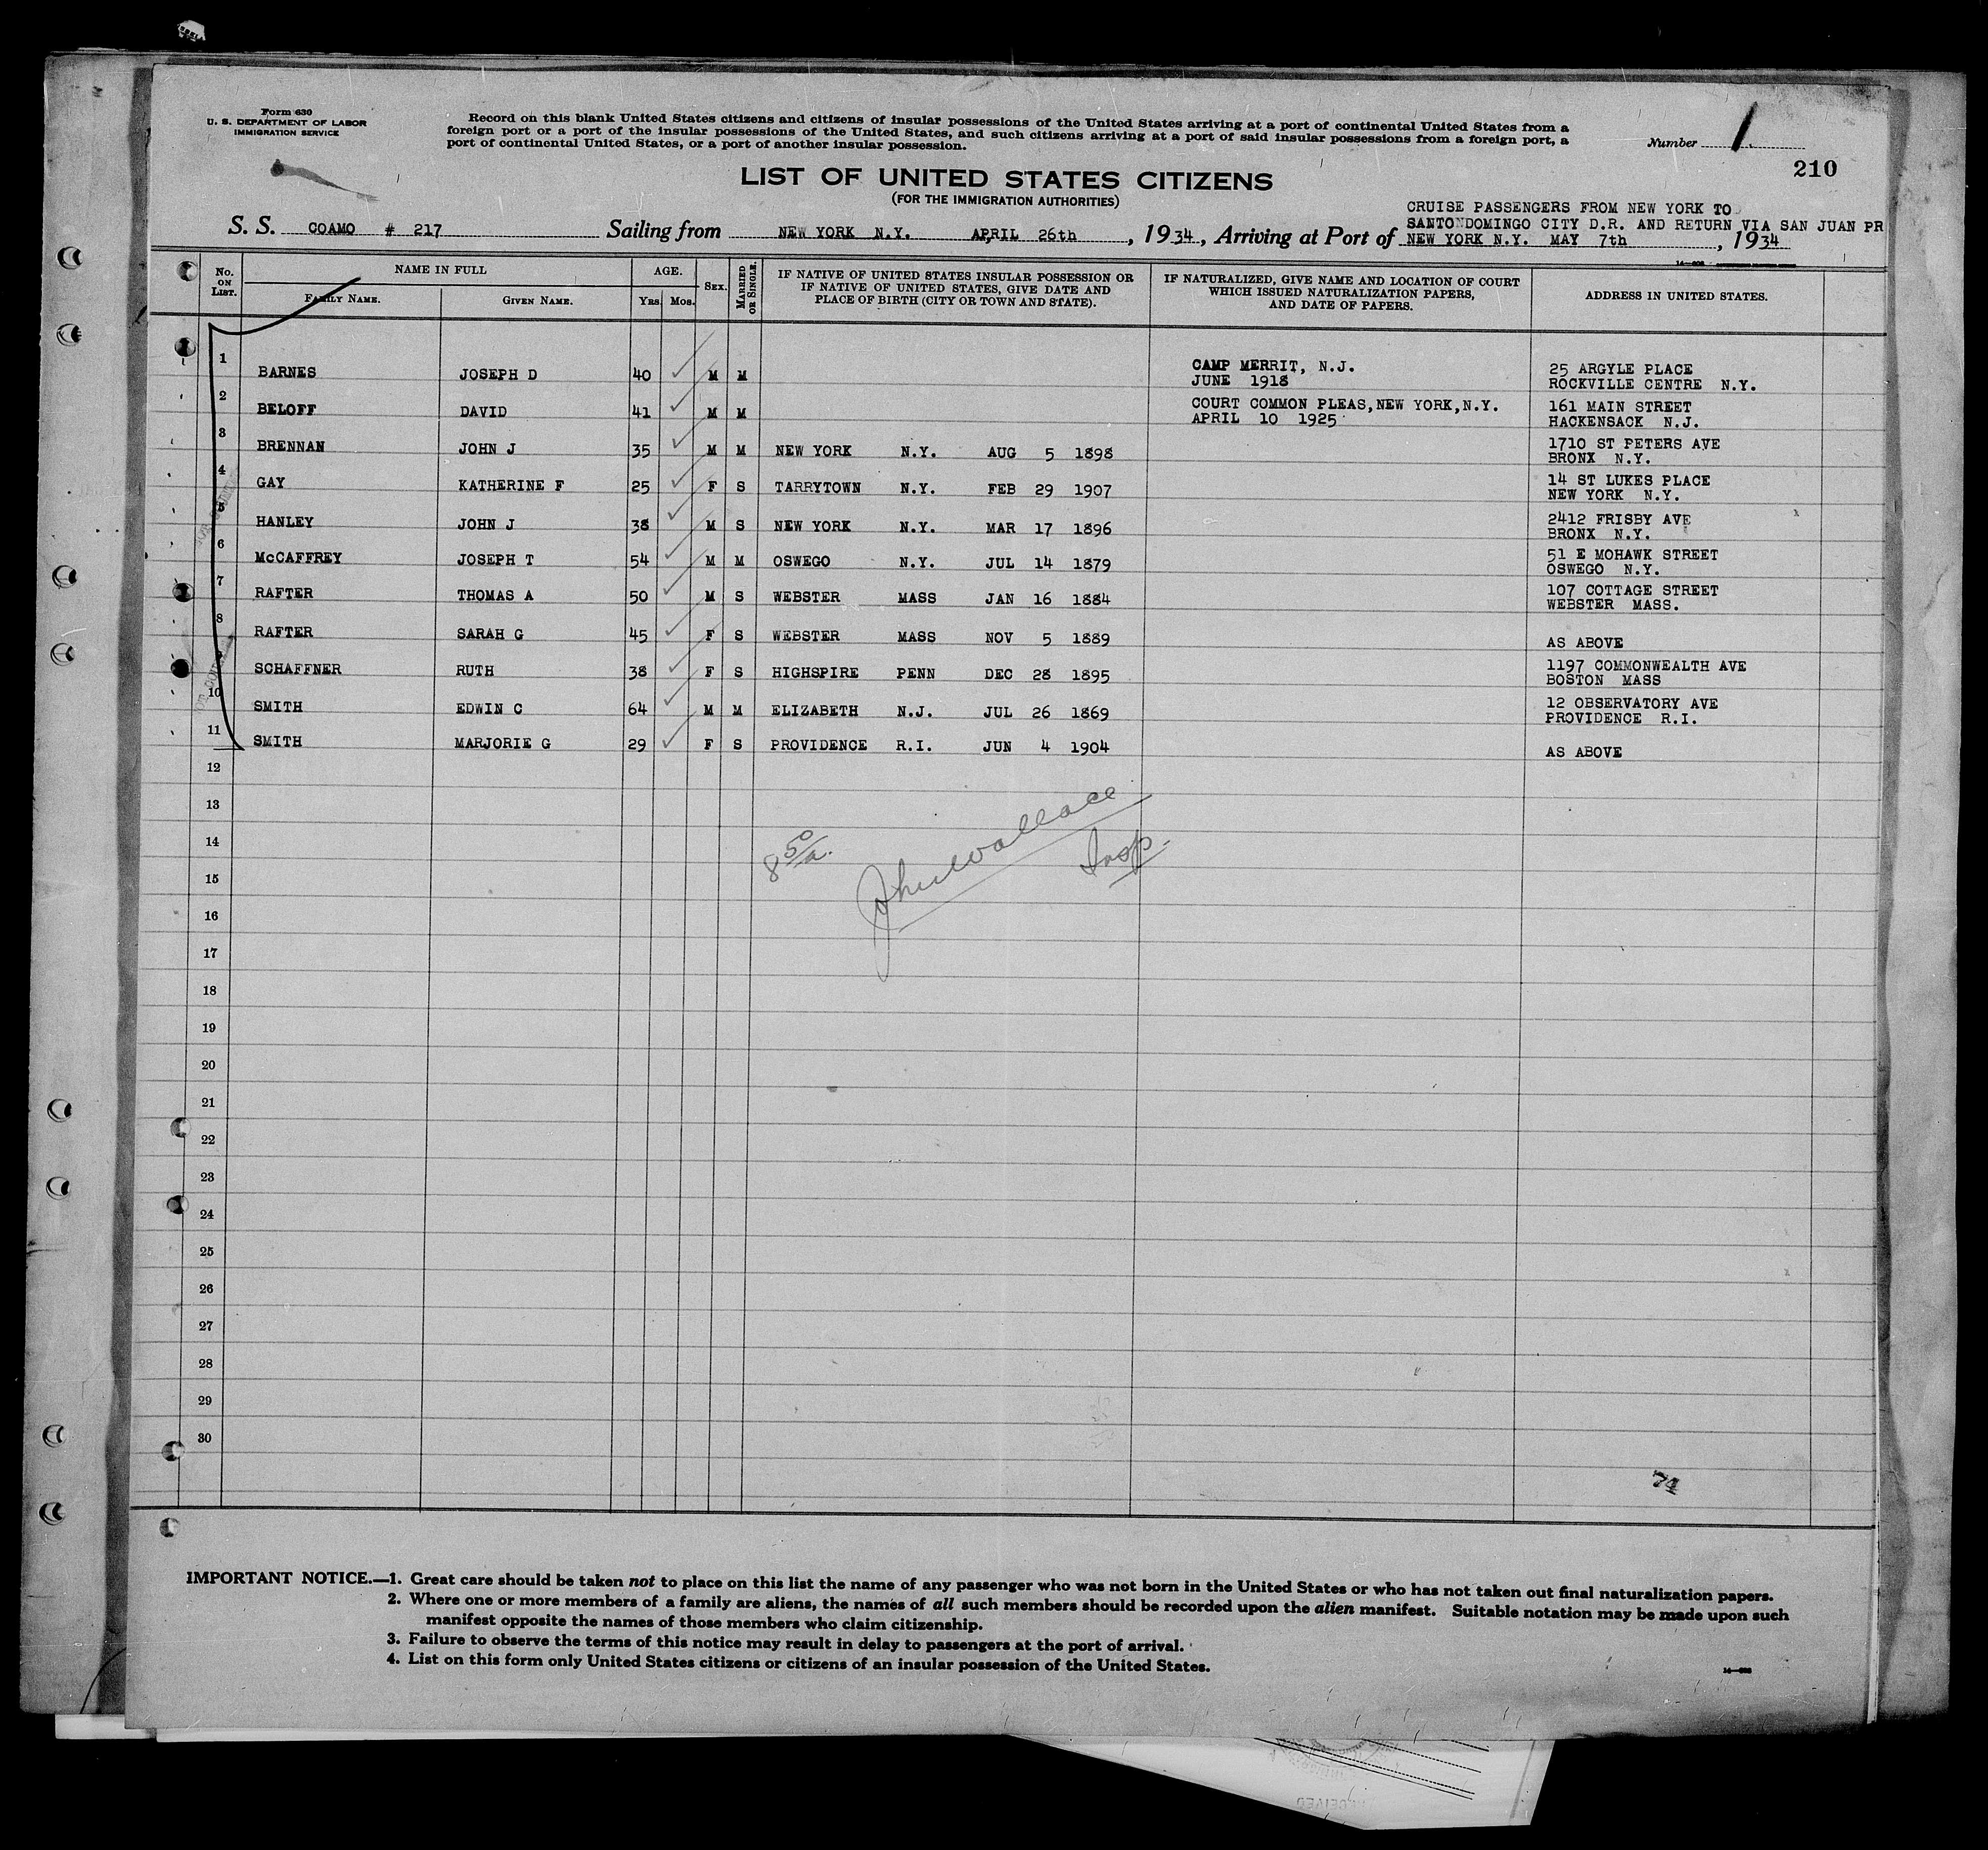 Form 630
U. S. DEPARTMENT OF LABOR
IMMIGRATION SERVICE
Record on this blank United States citizens and citizens of insular possessions of the United States arriving at a port of continental United States from a
foreign port or a port of the insular possessions of the United States, and such citizens arriving at a port of said insular possessions from a foreign port, a
port of continental United States, or a port of another insular possession.
Number 1.
210
LIST OF UNITED STATES CITIZENS
(FOR THE IMMIGRATION AUTHORITIES)
CRUISE PASSENGERS FROM NEW YORK TO
SANTO DOMINGO CITY D.R. AND RETURN VIA SAN JUAN PR
S. S. COAMO # 217 Sailing from NEW YORK N.Y. APRIL 26th, 1934, Arriving at Port of NEW YORK N.Y. MAY 7th, 1934
No. ON LIST. NAME IN FULL FAMILY NAME. GIVEN NAME. AGE. YRS. MOS. SEX. MARRIED OR SINGLE. IF NATIVE OF UNITED STATES INSULAR POSSESSION OR IF NATIVE OF UNITED STATES, GIVE DATE AND PLACE OF BIRTH (CITY OR TOWN AND STATE). IF NATURALIZED, GIVE NAME AND LOCATION OF COURT WHICH ISSUED NATURALIZATION PAPERS, AND DATE OF PAPERS. ADDRESS IN UNITED STATES.
1 BARNES JOSEPH D 40 M M CAMP MERRIT, N.J. JUNE 1918 25 ARGYLE PLACE ROCKVILLE CENTRE N.Y.
2 BELOFF DAVID 41 M M COURT COMMON PLEAS, NEW YORK, N.Y. APRIL 10 1925 161 MAIN STREET HACKENSACK N.J.
3 BRENNAN JOHN J 35 M M NEW YORK N.Y. AUG 5 1898 1710 ST PETERS AVE BRONX N.Y.
4 GAY KATHERINE F 25 F S TARRYTOWN N.Y. FEB 29 1907 14 ST LUKES PLACE NEW YORK N.Y.
5 HANLEY JOHN J 38 M S NEW YORK N.Y. MAR 17 1896 2412 FRISBY AVE BRONX N.Y.
6 McCAFFREY JOSEPH T 54 M M OSWEGO N.Y. JUL 14 1879 51 E MOHAWK STREET OSWEGO N.Y.
7 RAFTER THOMAS A 50 M S WEBSTER MASS JAN 16 1884 107 COTTAGE STREET WEBSTER MASS.
8 RAFTER SARAH G 45 F S WEBSTER MASS NOV 5 1889 AS ABOVE
9 SCHAFFNER RUTH 38 F S HIGHSPIRE PENN DEC 28 1895 1197 COMMONWEALTH AVE BOSTON MASS
10 SMITH EDWIN C 64 M M ELIZABETH N.J. JUL 26 1869 12 OBSERVATORY AVE PROVIDENCE R.I.
11 SMITH MARJORIE G 29 F S PROVIDENCE R.I. JUN 4 1904 AS ABOVE
12
13
14
15
16
17
18
19
20
21
22
23
24
25
26
27
28
29
30
850/a.
John Wallace
Insp.
74
IMPORTANT NOTICE.—1. Great care should be taken not to place on this list the name of any passenger who was not born in the United States or who has not taken out final naturalization papers.
2. Where one or more members of a family are aliens, the names of all such members should be recorded upon the alien manifest. Suitable notation may be made upon such
manifest opposite the names of those members who claim citizenship.
3. Failure to observe the terms of this notice may result in delay to passengers at the port of arrival.
4. List on this form only United States citizens or citizens of an insular possession of the United States.